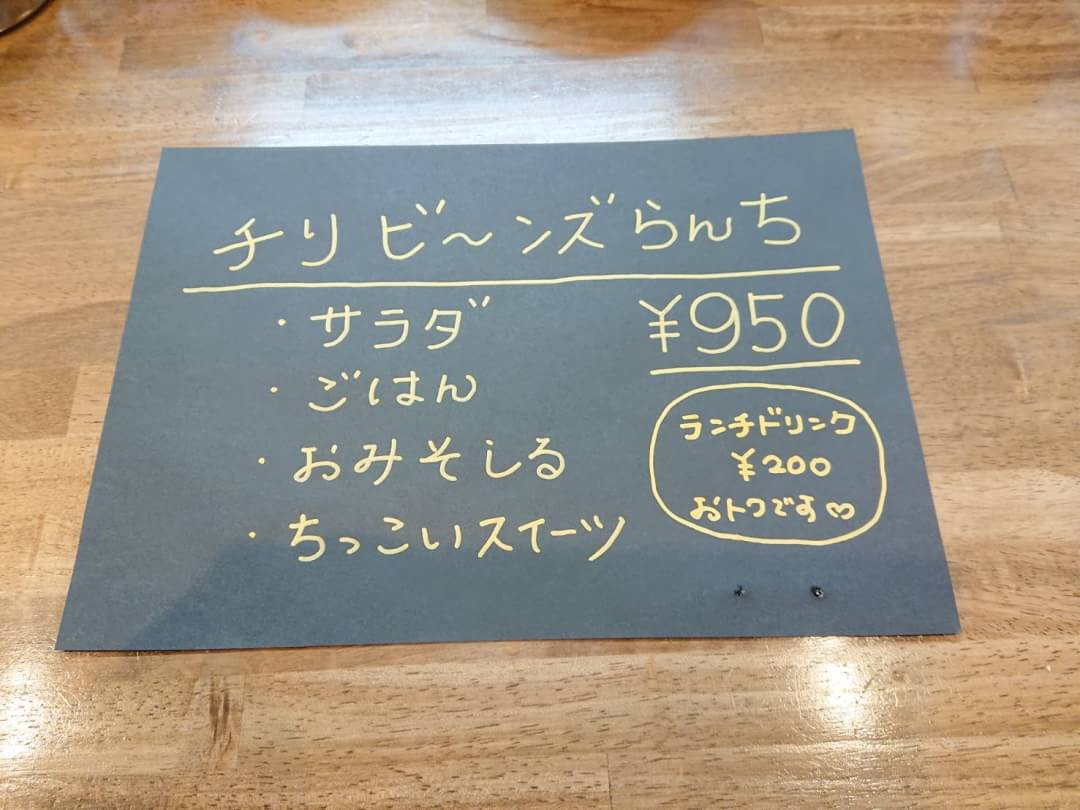 チリビ〜ンズらんち
・サラダ
¥950
・ごはん
・おみそしる
・ちっこいスイーツ
ランチドリンク
¥200
おトクです♡